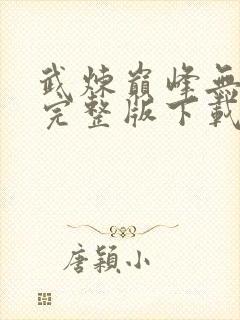 武煉巔峰無
完整版下載
唐穎小